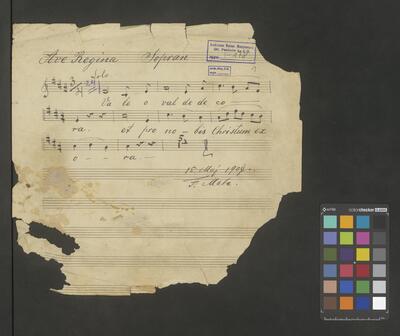 Ave Regina Sopran
Solo
Va le o val de de co
ra. et pro no - bis Christum ex
o - - ra -
15 Maj 1909.
F. Mola.
colorchecker CLASSIC